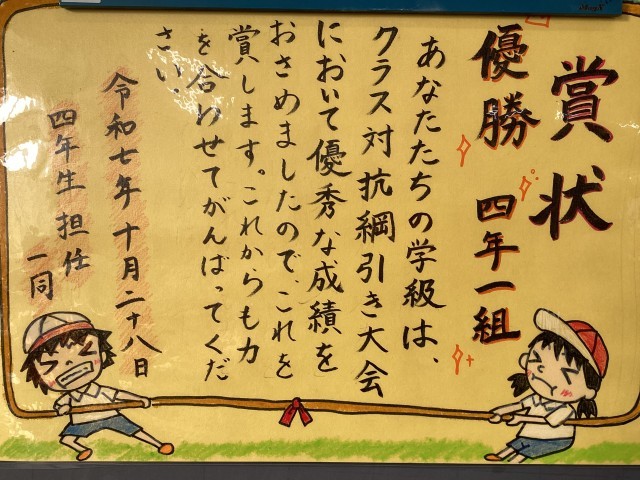 賞状
優勝 四年一組
あなたたちの学級は、
クラス対抗綱引き大会
において優秀な成績を
おさめましたので、これを
賞します。これからも力
を合わせてがんばってくだ
さい。
令和七年十月二十八日
四年生担任
一同